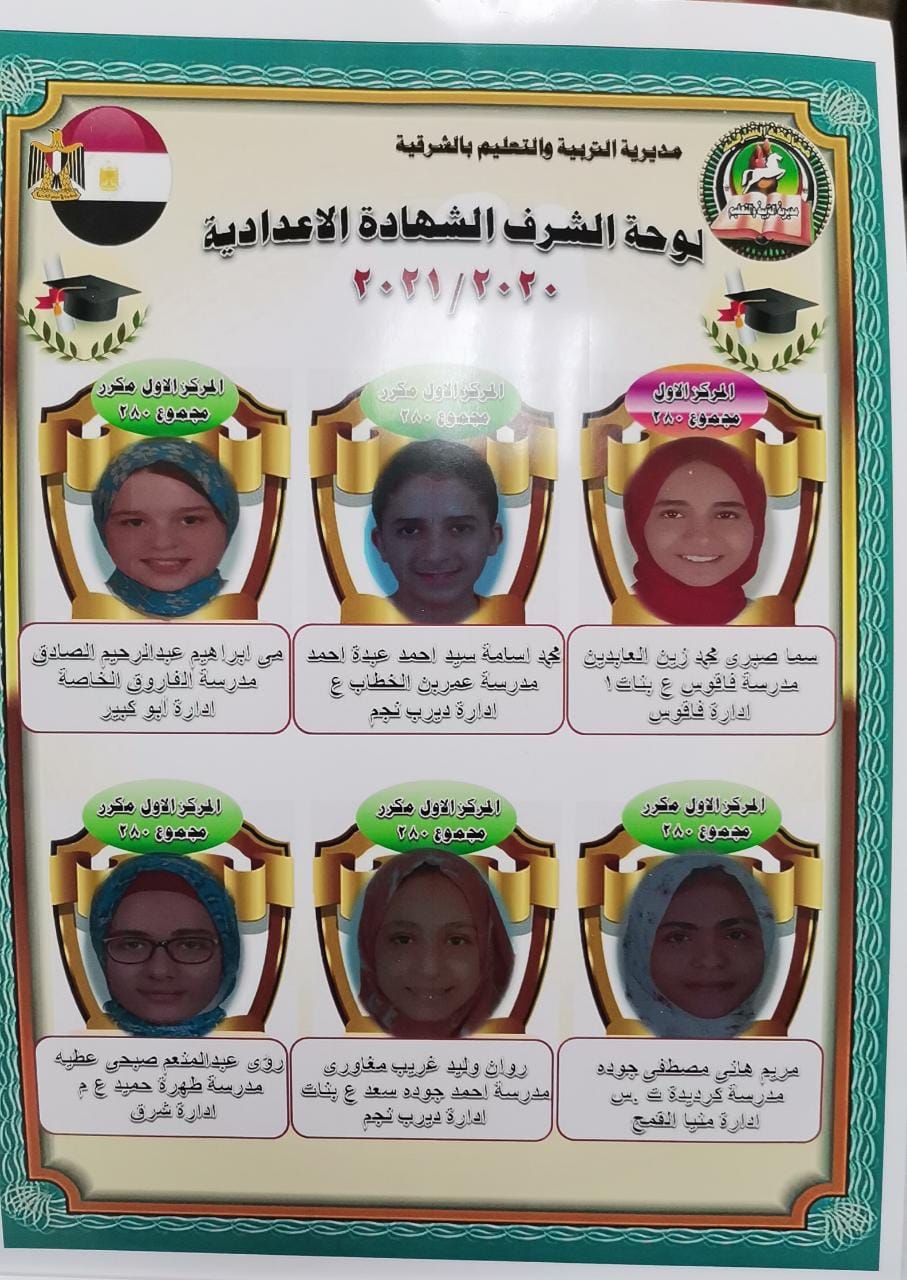 مديرية التربية والتعليم بالشرقية
مديرية التربية والتعليم
لوحة الشرف الشهادة الاعدادية
٢٠٢١/٢٠٢٠
المركز الاول
مجموع ٢٨٠
سما صبرى محمد زين العابدين
مدرسة فاقوس ع بنات١
ادارة فاقوس
المركز الاول مكرر
مجموع ٢٨٠
محمد اسامة سيد احمد عبدة احمد
مدرسة عمربن الخطاب ع
ادارة ديرب نجم
المركز الاول مكرر
مجموع ٢٨٠
مى ابراهيم عبدالرحيم الصادق
مدرسة الفاروق الخاصة
ادارة ابو كبير
المركز الاول مكرر
مجموع ٢٨٠
مريم هانى مصطفى جوده
مدرسة كرديدة ت .س
ادارة منيا القمح
المركز الاول مكرر
مجموع ٢٨٠
روان وليد غريب مغاورى
مدرسة احمد جوده سعد ع بنات
ادارة ديرب نجم
المركز الاول مكرر
مجموع ٢٨٠
روى عبدالمنعم صبحى عطيه
مدرسة طهرة حميد ع م
ادارة شرق